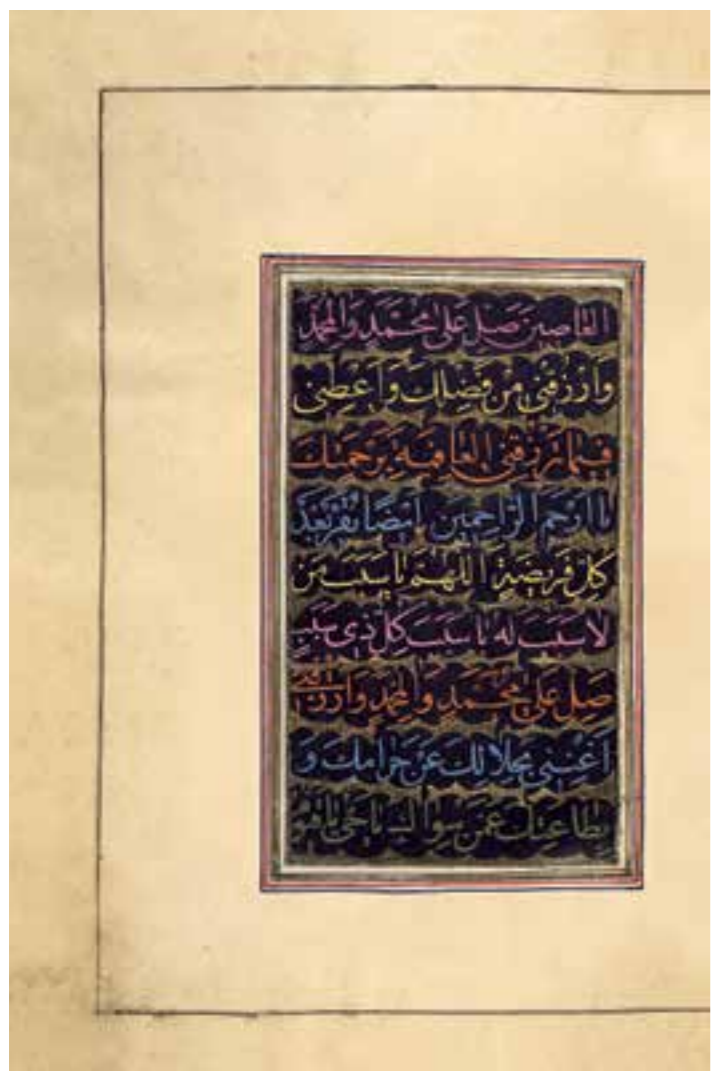 الغاصين صل على محمد وال محمد
وارزقنى من فضلك واعطنى
فيما ترزقنى العافيه برحمتك
يا ارحم الراحمين ايضا يقر بعد
كل فريضة اللهم يا سبب من
لا سبب له يا سبب كل ذى سبب
صل على محمد وال محمد وارزقنى
اغننى بحلالك عن حرامك و
بطاعتك عمن سواك يا حى يا قيو